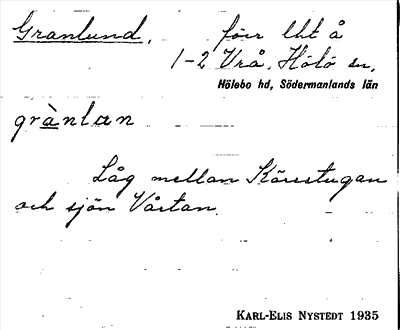 Granlund, förr lht å
1-2 Vrå, Hölö sn,
Hölebo hd, Södermanlands län
grànlan
Låg mellan Körestugan
och sjön Vårtan.
KARL-ELIS NYSTEDT 1935